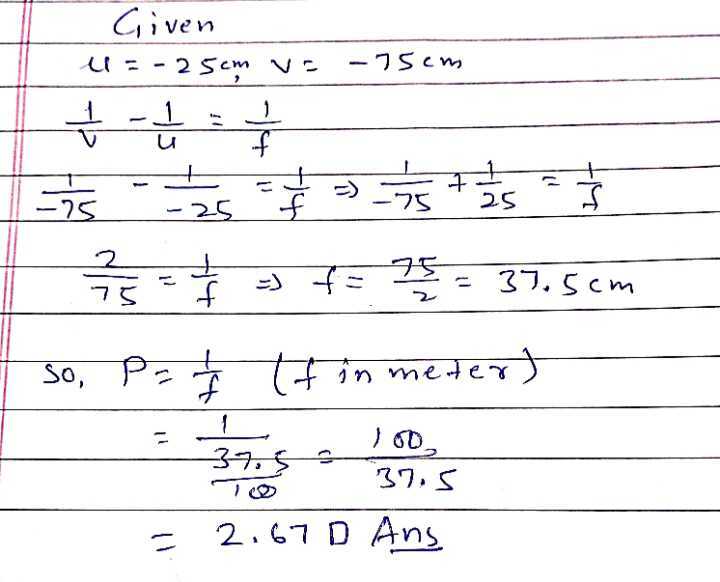 Given
u = -25cm, v = -75cm
1/v - 1/u = 1/f
1/-75 - 1/-25 = 1/f ⇒ 1/-75 + 1/25 = 1/f
2/75 = 1/f ⇒ f = 75/2 = 37.5cm
so, P = 1/f (f in meter)
= 1/(37.5/100) = 100/37.5
= 2.67 D Ans